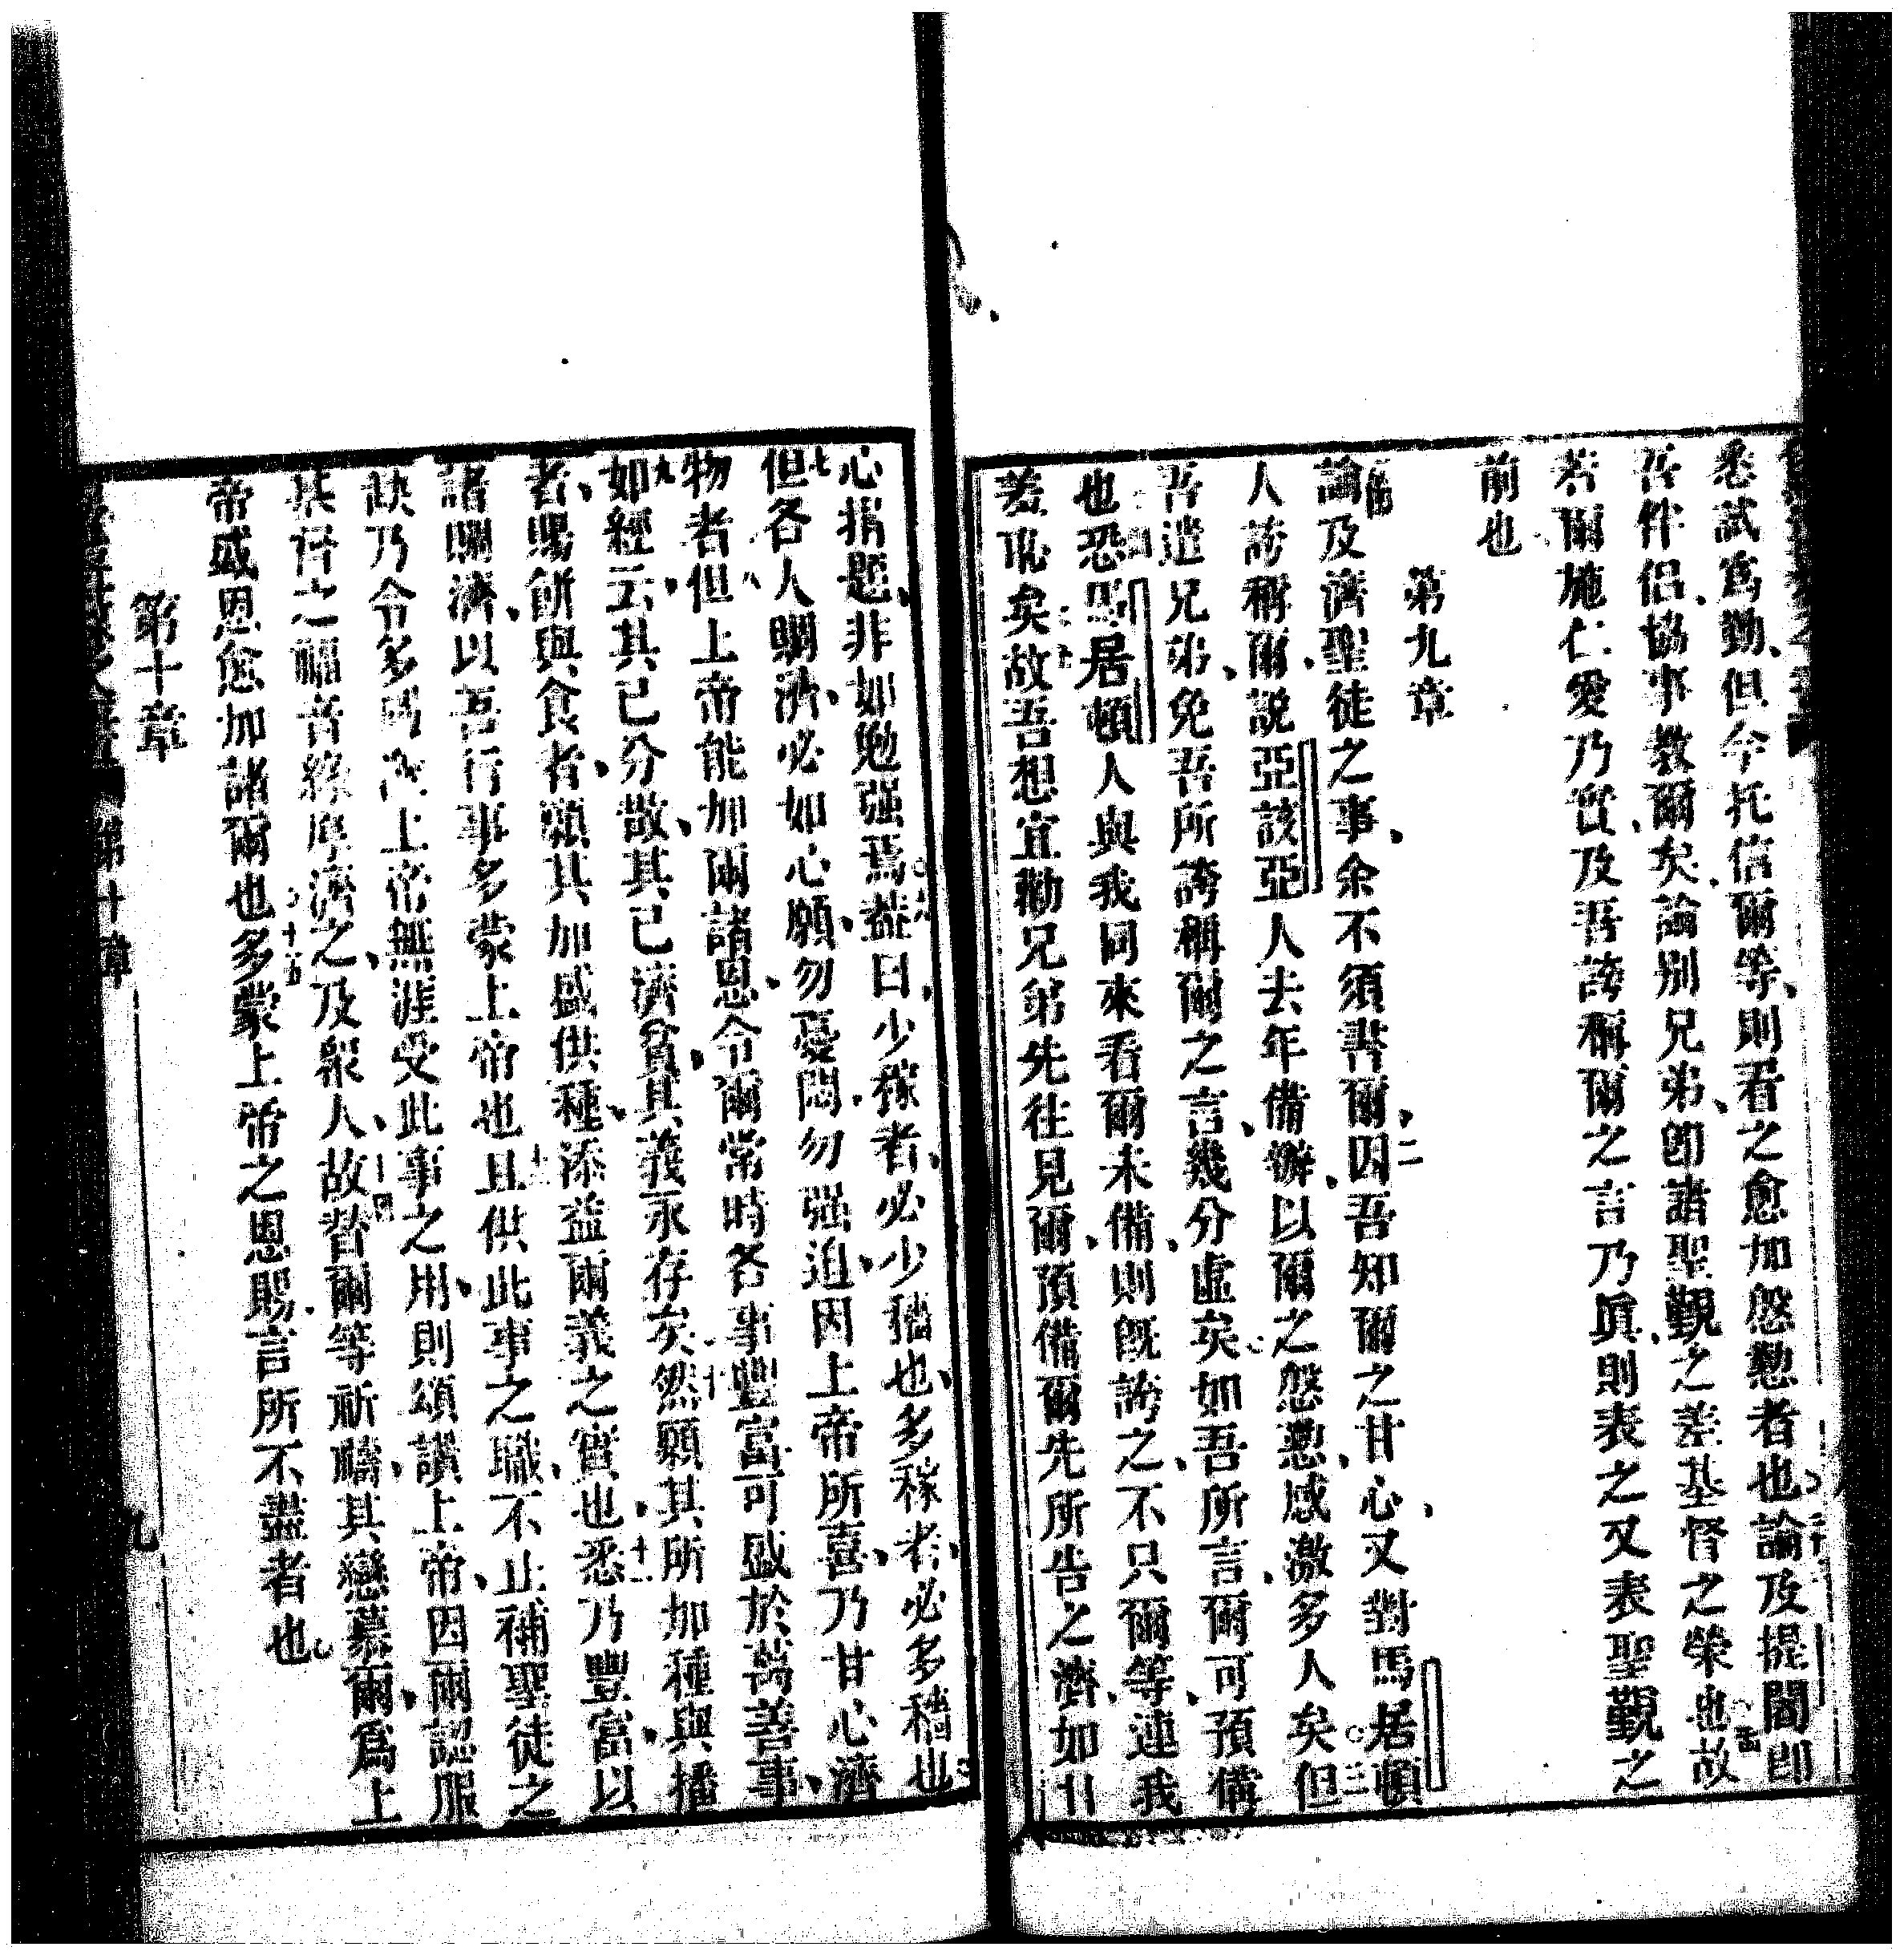 悉試爲勤、但今托信爾等、則看之愈加慇懃者也論及提閽卽
吾伴侣、協事教爾矣、論别兄弟、卽諸聖覲之差基督之榮也故
若爾施仁愛乃實、及吾誇稱爾之言乃眞、則表之又表聖覲之
前也
第九章
論及濟聖徒之事、余不須書爾、二因吾知爾之甘心、又對馬居頓
人誇稱爾、説亞該亞人去年備辦、以爾之慇懃、感激多人矣三但
吾遣兄弟、免吾所誇稱爾之言、幾分虛矣如吾所言、爾可預備
也四恐馬居頓人與我同來看爾未備、則旣誇之、不只爾等、連我
羞耻矣故吾想宜勸兄弟先往見爾、預備爾先所告之濟、如
心捐題、非如勉强焉蓋曰、少稼者、必少穡也、多稼者、必多穡也
七但各人賙濟、必如心願、勿憂悶、勿强迫、因上帝所喜、乃甘心濟
物者八但上帝能加爾諸恩、令爾常時各事豐富可盛於萬善事、
九如經云、其已分散、其已濟貧、其義永存矣十然願其所加種與播
者、賜餅與食者、願其加盛供種、添益爾義之實也、十一悉乃豐富、以
諸賙濟、以吾行事多蒙上帝也十二且供此事之職、不止補聖徒之
缺乃令多 上帝無涯受此事之用、則頌讚上帝、因爾認服
其督之福音綠厚濟之、及衆人、十四故替爾等祈禱、其戀慕爾、爲上
帝盛恩愈加諸爾也十五多蒙上帝之恩賜、言所不盡者也
第十章
第十章
九